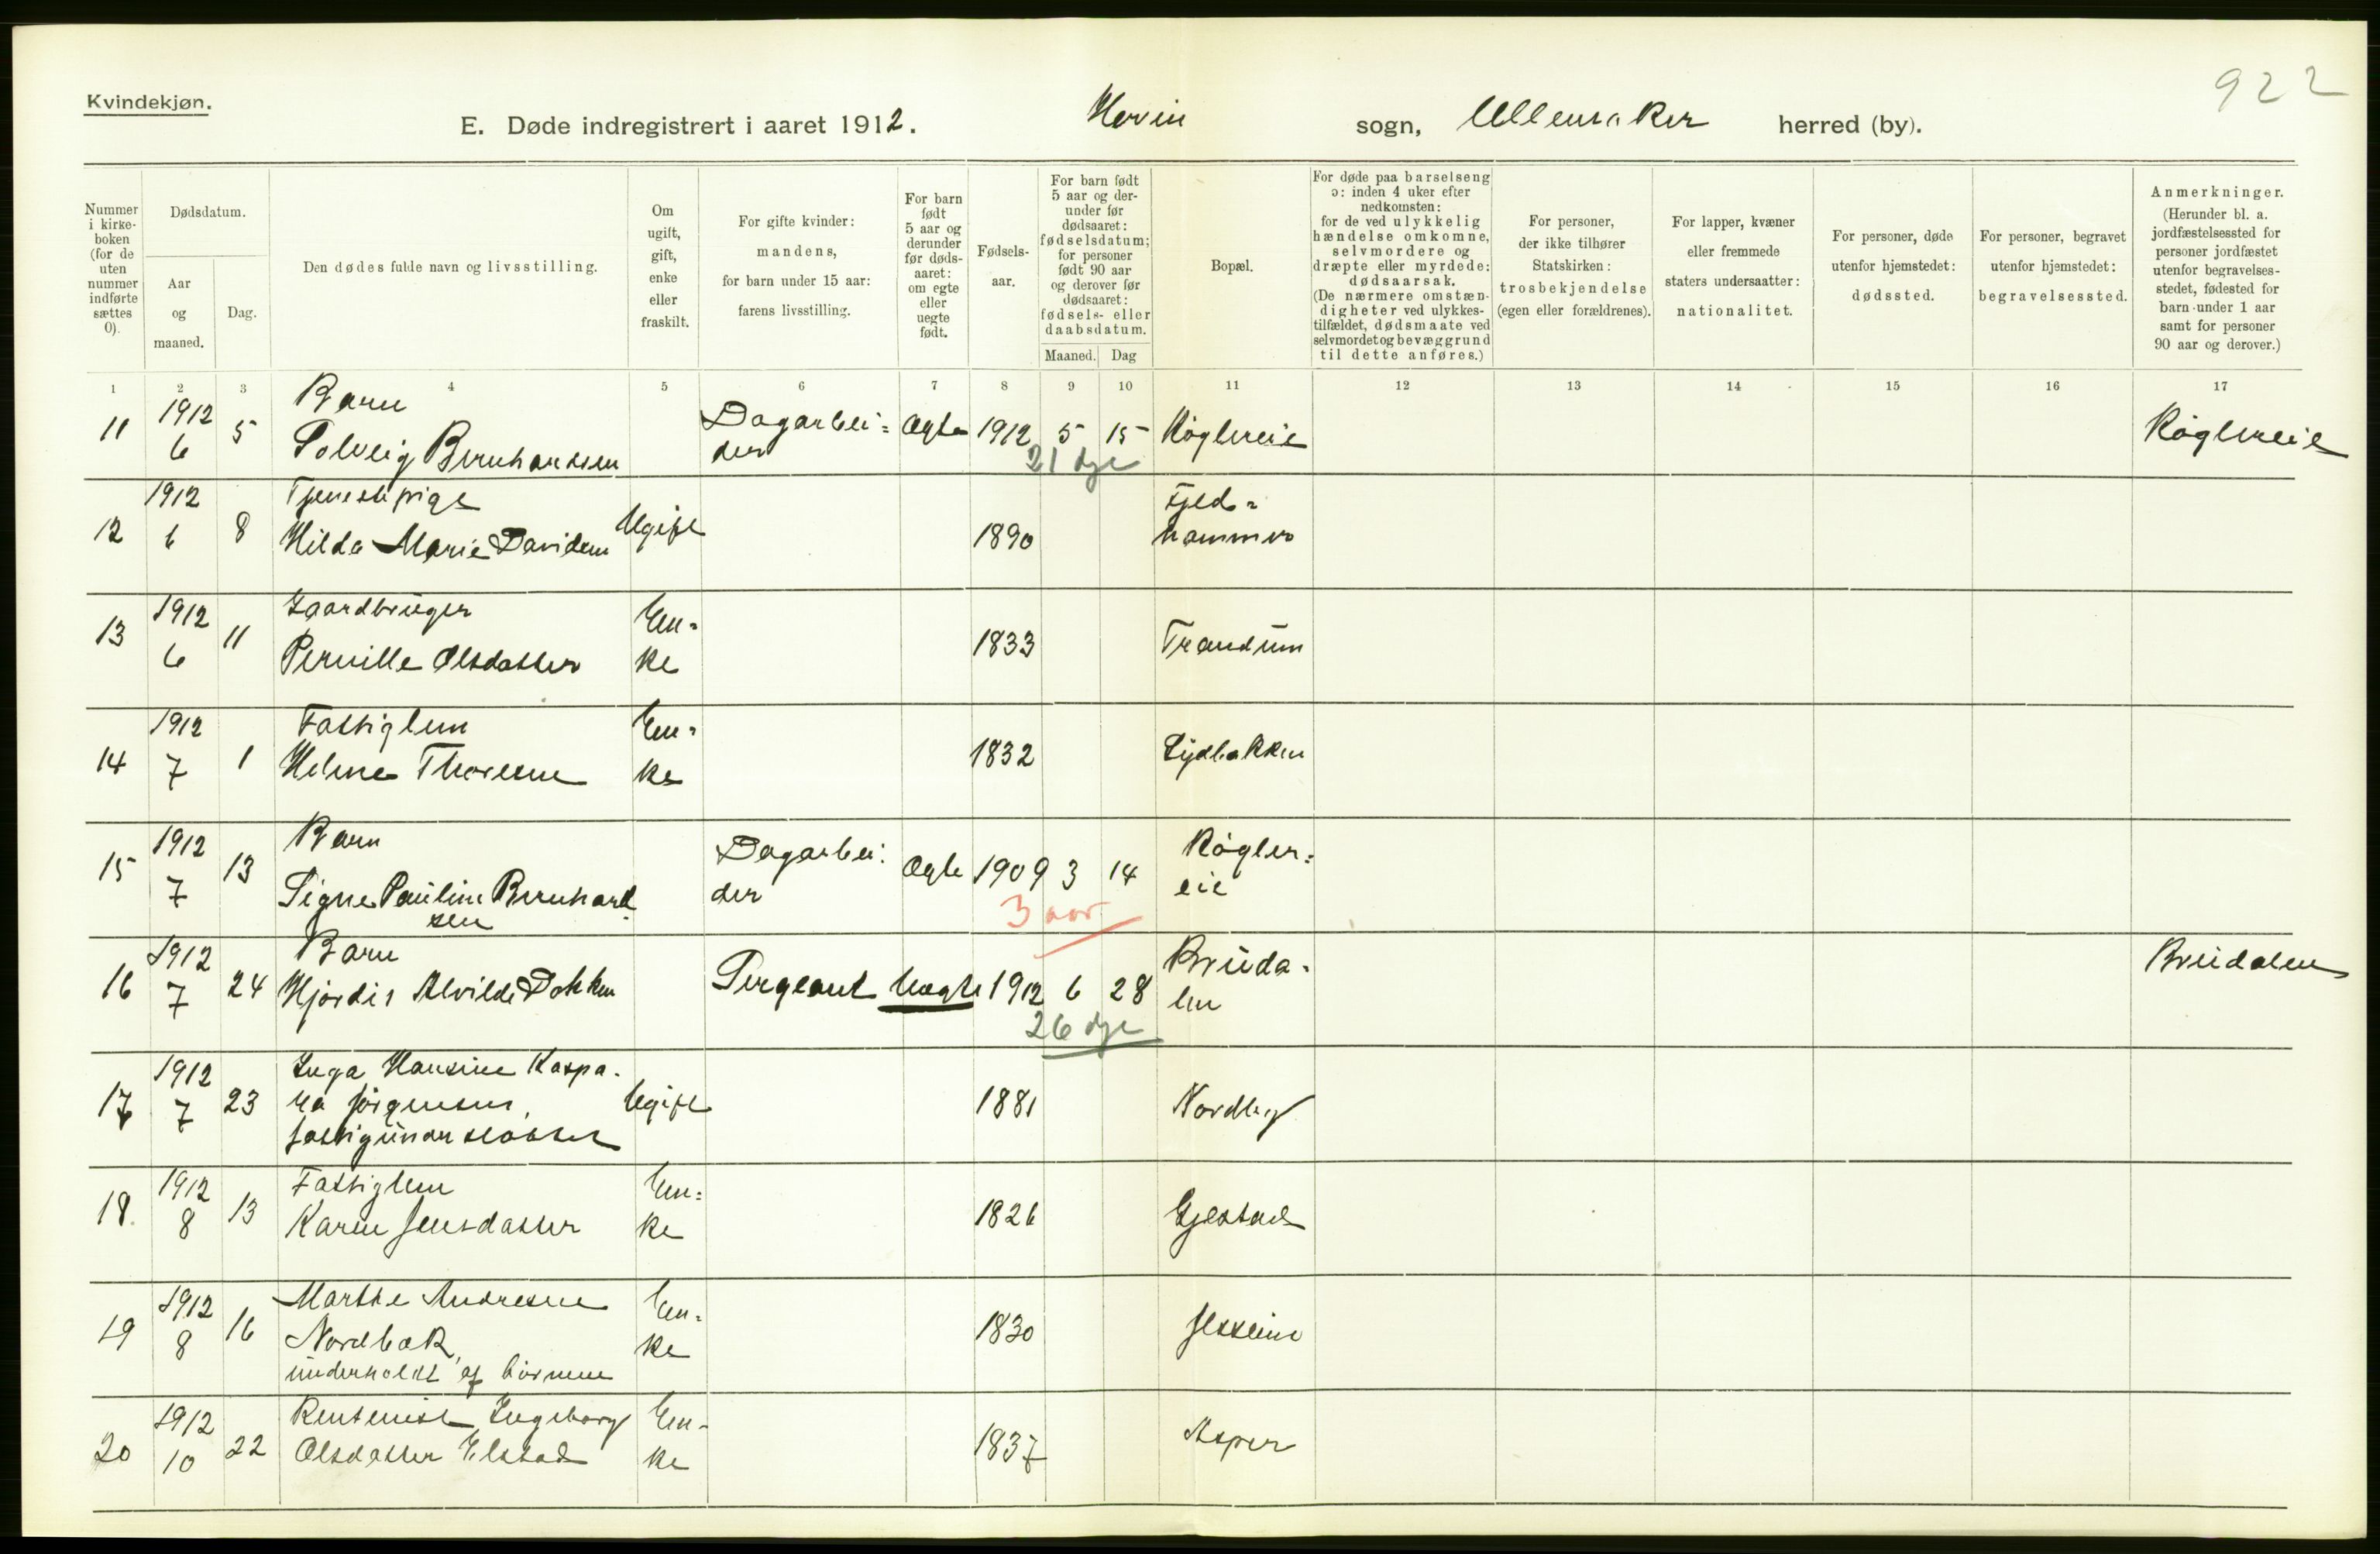 922
Kvindekjøn.
E. Døde indregistrert i aaret 1912. Hovin sogn, Ullensaker herred (by).
Nummer i kirke- boken (for de uten nummer indførte sættes 0).
Dødsdatum.
Aar og maaned.
Dag.
Den dødes fulde navn og livsstilling.
Om ugift, gift, enke eller fraskilt.
For gifte kvinder: mandens, for barn under 15 aar: farens livsstilling.
For barn født 5 aar og derunder før døds- aaret: om egte eller uegte født.
Fødsels- aar.
For barn født 5 aar og der- under før dødsaaret: fødselsdatum; for personer født 90 aar og derover før dødsaaret: fødsels- eller daabsdatum.
Maaned. Dag
Bopæl.
For døde paa barselseng ɔ: inden 4 uker efter nedkomsten: for de ved ulykkelig hændelse omkomne, selvmordere og dræpte eller myrdede: dødsaarsak. (De nærmere omstæn- digheter ved ulykkes- tilfældet, dødsmaate ved selvmordet og bevæggrund til dette anføres.)
For personer, der ikke tilhører Statskirken: trosbekjendelse (egen eller forældrenes).
For lapper, kvæner eller fremmede staters undersaatter: nationalitet.
For personer, døde utenfor hjemstedet: dødssted.
For personer, begravet utenfor hjemstedet: begravelsessted.
Anmerkninger. (Herunder bl. a. jordfæstelsessted for personer jordfæstet utenfor begravelses- stedet, fødested for barn under 1 aar samt for personer 90 aar og derover.)
1 2 3 4 5 6 7 8 9 10 11 12 13 14 15 16 17
11 1912 6 5 Barn Solveig Bernhardsen Dagarbei= der Ægte 1912 5 15 Røglereie Røglereie
21 dge
12 1912 6 8 Tjenestepige Hilda Marie Davidsen Ugift 1890 Fjeld= hammer
13 1912 6 11 Gaardbruger Pernille Olsdatter En= ke 1833 Trandum
14 1912 7 1 Fattiglem Helene Thoresen En= ke 1832 Lydbakken
15 1912 7 13 Barn Signe Pauline Bernhard= sen Dagarbei= der Ægte 1909 3 14 Røgler= eie
3 aar
16 1912 7 24 Barn Hjørdis Alvilde Dokken Sergeant Uægte 1912 6 28 Bruda= len Brudalen
26 dge
17 1912 7 23 Inga Hansine Kaspa= ra Jørgensen, fattigunderstøttet Ugift 1881 Nordby
18 1912 8 13 Fattiglem Karen Jensdatter En= ke 1826 Gjestad
19 1912 8 16 Marthe Andresen Nordbæk, underholdt af børnene En= ke 1830 Jessheim
20 1912 10 22 Rentenist Ingeborg Olsdatter Elstad En= ke 1837 Asper